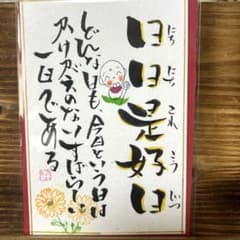 日日是好日
にちにちこれこうじつ
どんな日も、今日という日は
かけがえのないすばらしい
一日である